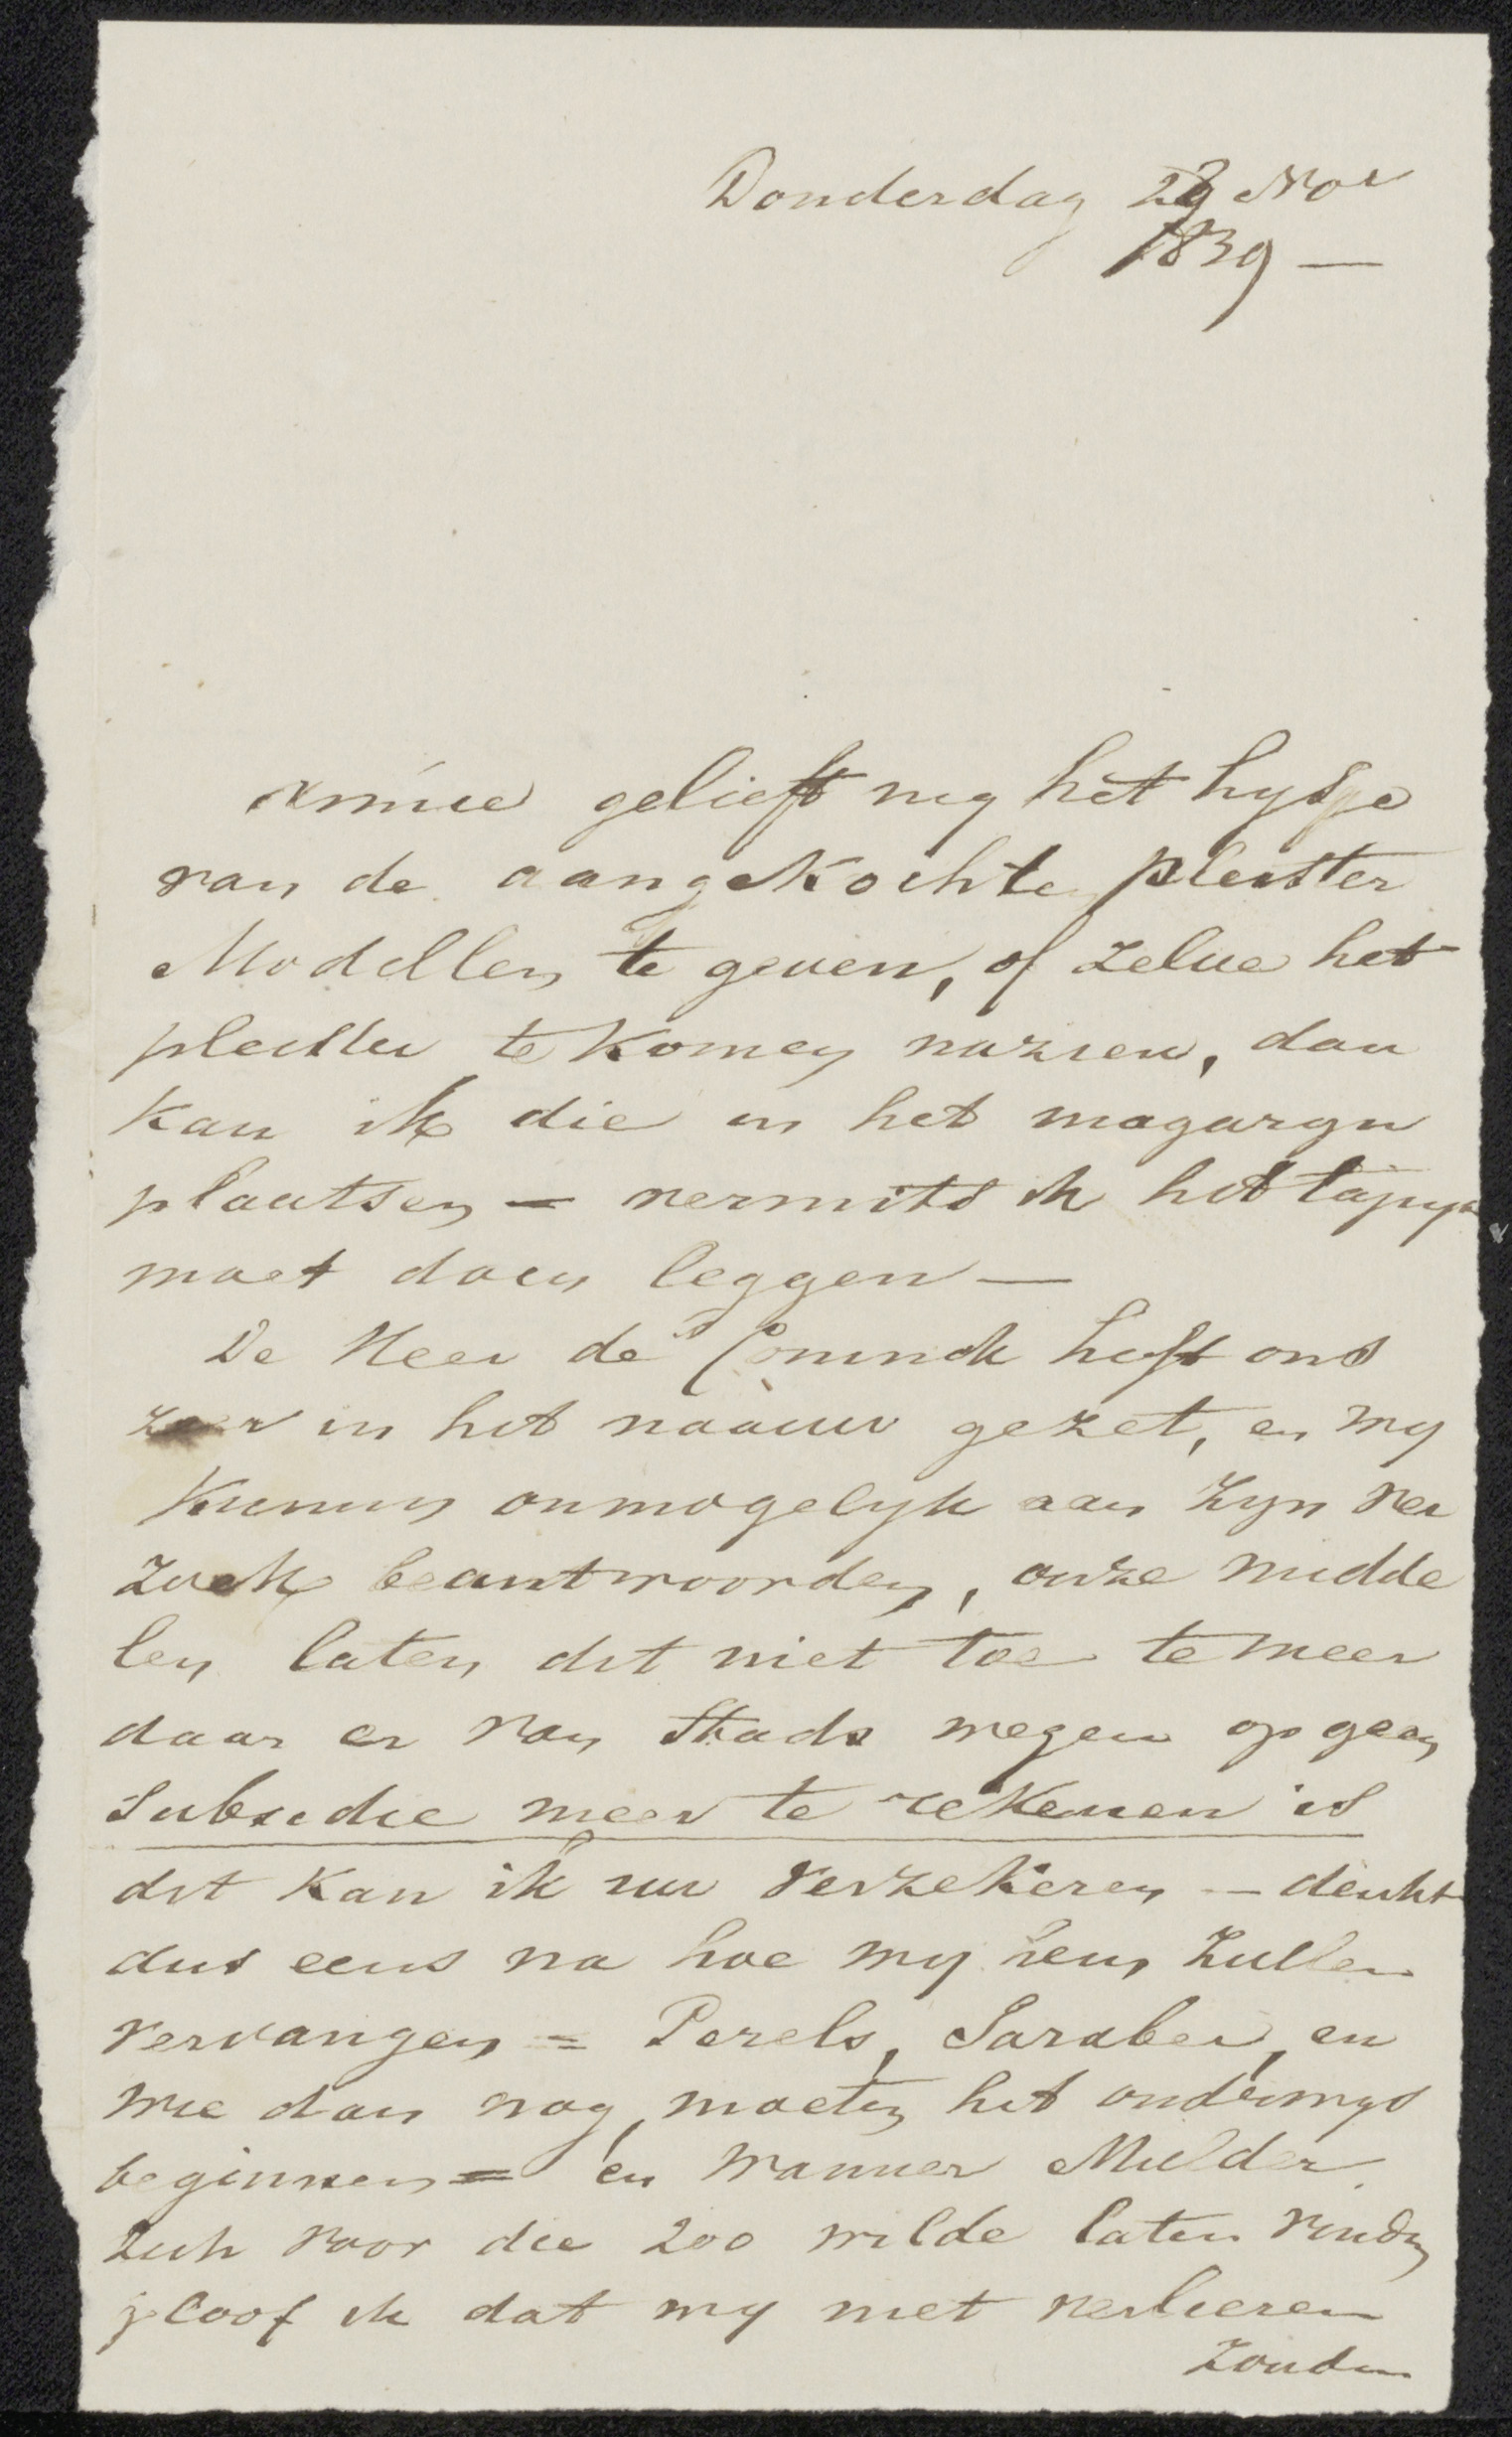 Donderdag 28 Nov
1839 —
Amice gelieft my het lystje
van de aangekochte pleister
Modellen te geven, of zelve het
pleister te komen nazien, dan
kan ik die in het magazyn
plaatsen — vermits ik het tapyt
moet doen leggen —
De Heer de Coninck heeft ons
zeer in het naauw gezet, en wy
kunnen onmogelyk aan zyn ver
zoek beantwoorden, onze midde
len laten dit niet toe te meer
daar er van Stads wegen op geen
Subsidie meer te rekenen is
dit kan ik uw verzekeren — denkt
dus eens na hoe wy hem zullen
vervangen = Perels, Saraber, en
wie dan nog, moeten het onderwys
beginnen = en wanneer Mulder
zich voor die 200 wilde laten vinden
geloof ik dat wy niet verliezen
zouden